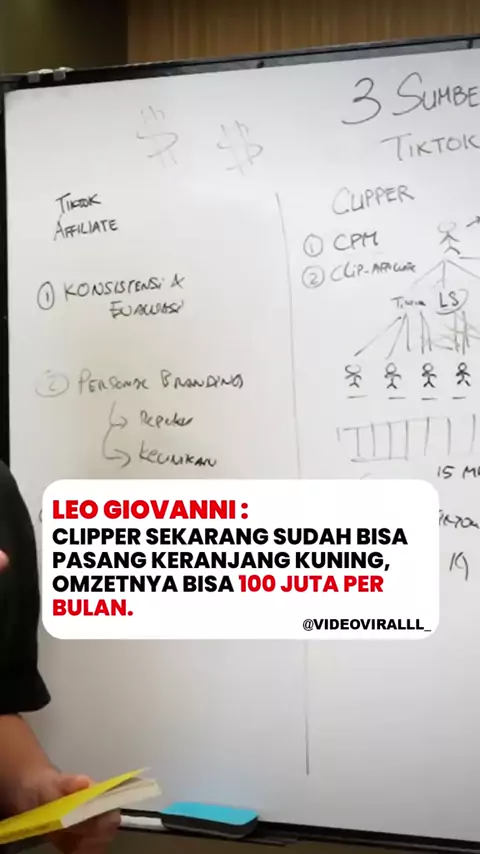 3 SUMBE
TIKTOK
TIKTOK
AFFILIATE
① KONSISTENSI &
EVALUASI
② PERSONAL BRANDING
KEUNIKAN
CLIPPER
① CPM
② CLIP-AFFILIATE
LS
15 M
LEO GIOVANNI :
CLIPPER SEKARANG SUDAH BISA
PASANG KERANJANG KUNING,
OMZETNYA BISA 100 JUTA PER
BULAN.
@VIDEOVIRALLL_